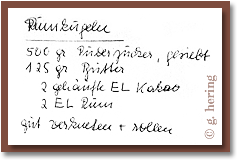 Rumkugeln
500 gr Puderzucker, gesiebt
125 gr Butter
2 gehäufte EL Kakao
2 EL Rum
gut verkneten + rollen
© g. hering